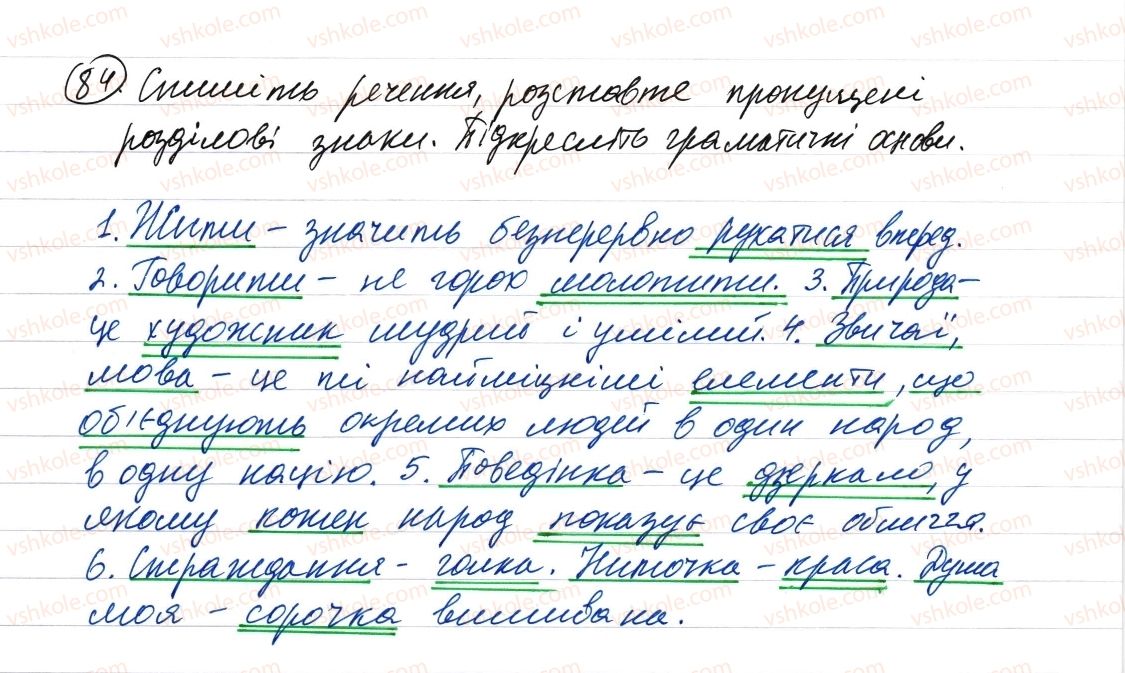 84. Спишіть речення, розставте пропущені
розділові знаки. Підкресліть граматичні основи.
1. Жити – значить безперервно рухатися вперед.
2. Говорити – не горох молотити. 3. Природа –
це художник мудрий і умілий. 4. Звичаї,
мова – це ті найміцніші елементи, що
об'єднують окремих людей в один народ,
в одну націю. 5. Поведінка – це дзеркало, у
якому кожен народ показує своє обличчя.
6. Страждання – голка. Ниточка – краса. Душа
моя – сорочка вишивана.